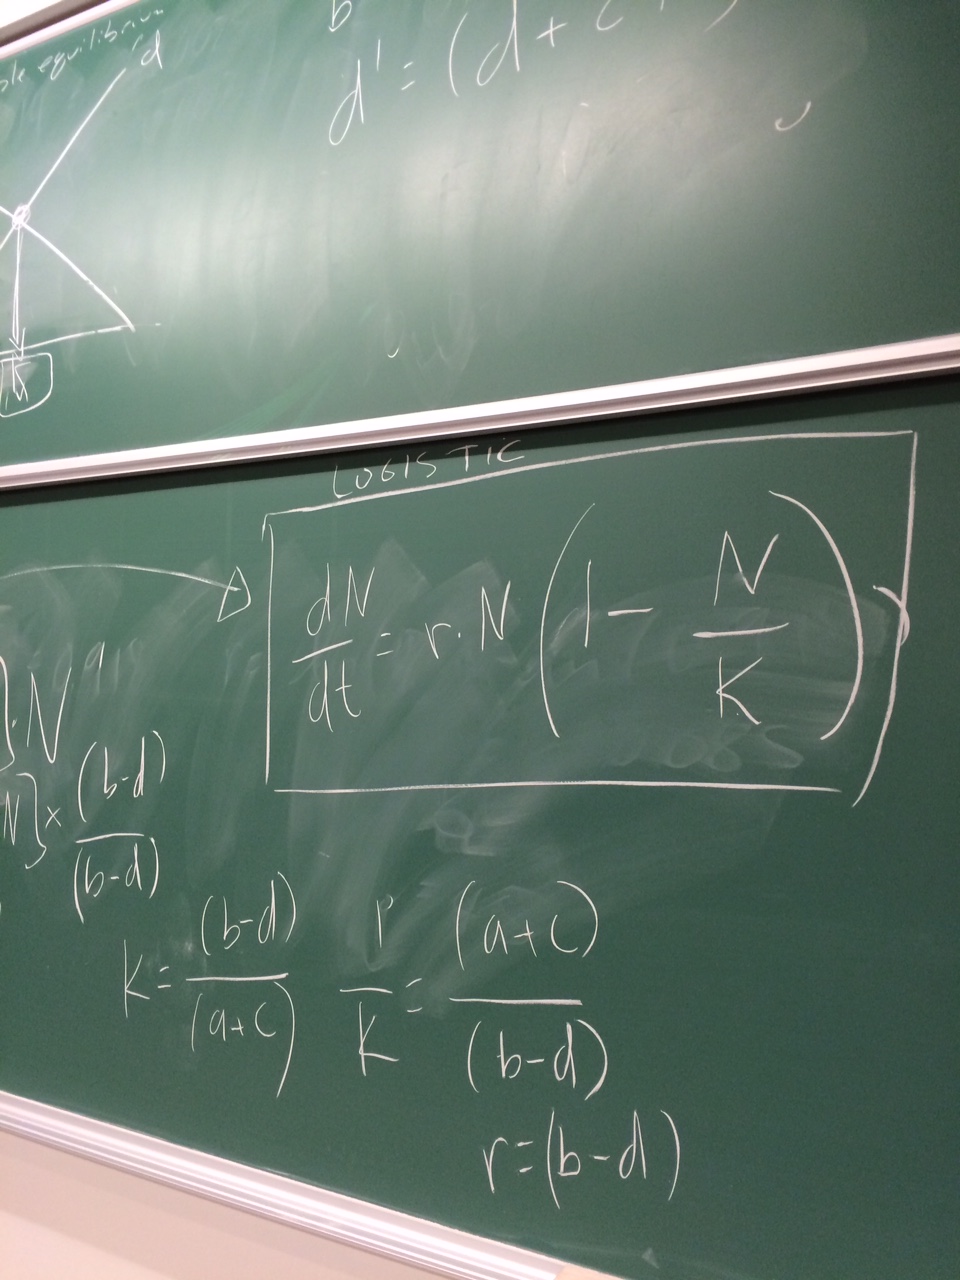 ble equilibrium
d
b
d' = (d + c
K
LOGISTIC
dN/dt = r. N (1 - N/K)
].N
N] x (b-d)/(b-d)
K = (b-d)/(a+c) 1/K = (a+c)/(b-d)
r = (b-d)